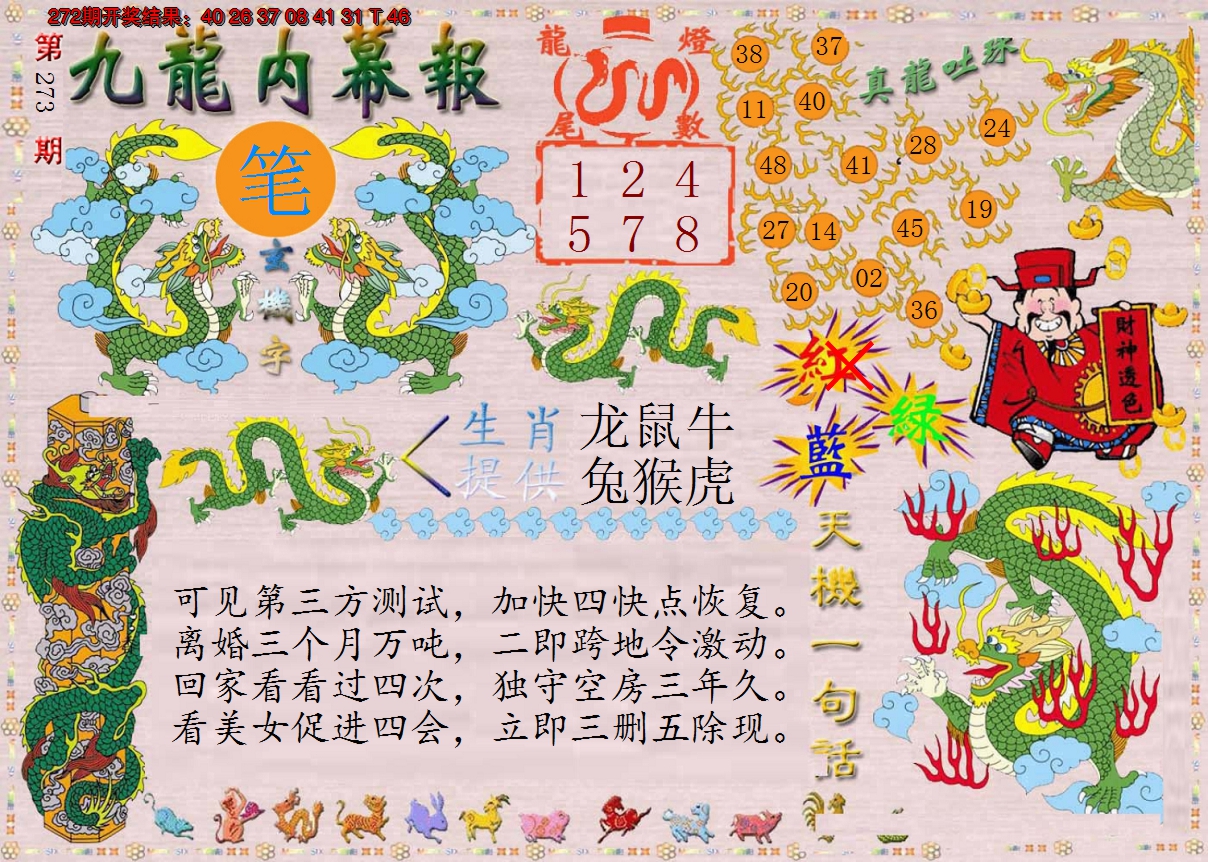 272期开奖结果：40 26 37 08 41 31 T 46
第273期
九龍内幕報
笔
玄機字
龍燈
尾數
1 2 4
5 7 8
真龍吐珠
38 37
11 40
48 41 28 24
27 14 45 19
20 02 36
財神透色
紅
綠
藍
生肖提供
龙鼠牛
兔猴虎
天機一句話
可见第三方测试，加快四快点恢复。
离婚三个月万吨，二即跨地令激动。
回家看看过四次，独守空房三年久。
看美女促进四会，立即三删五除现。